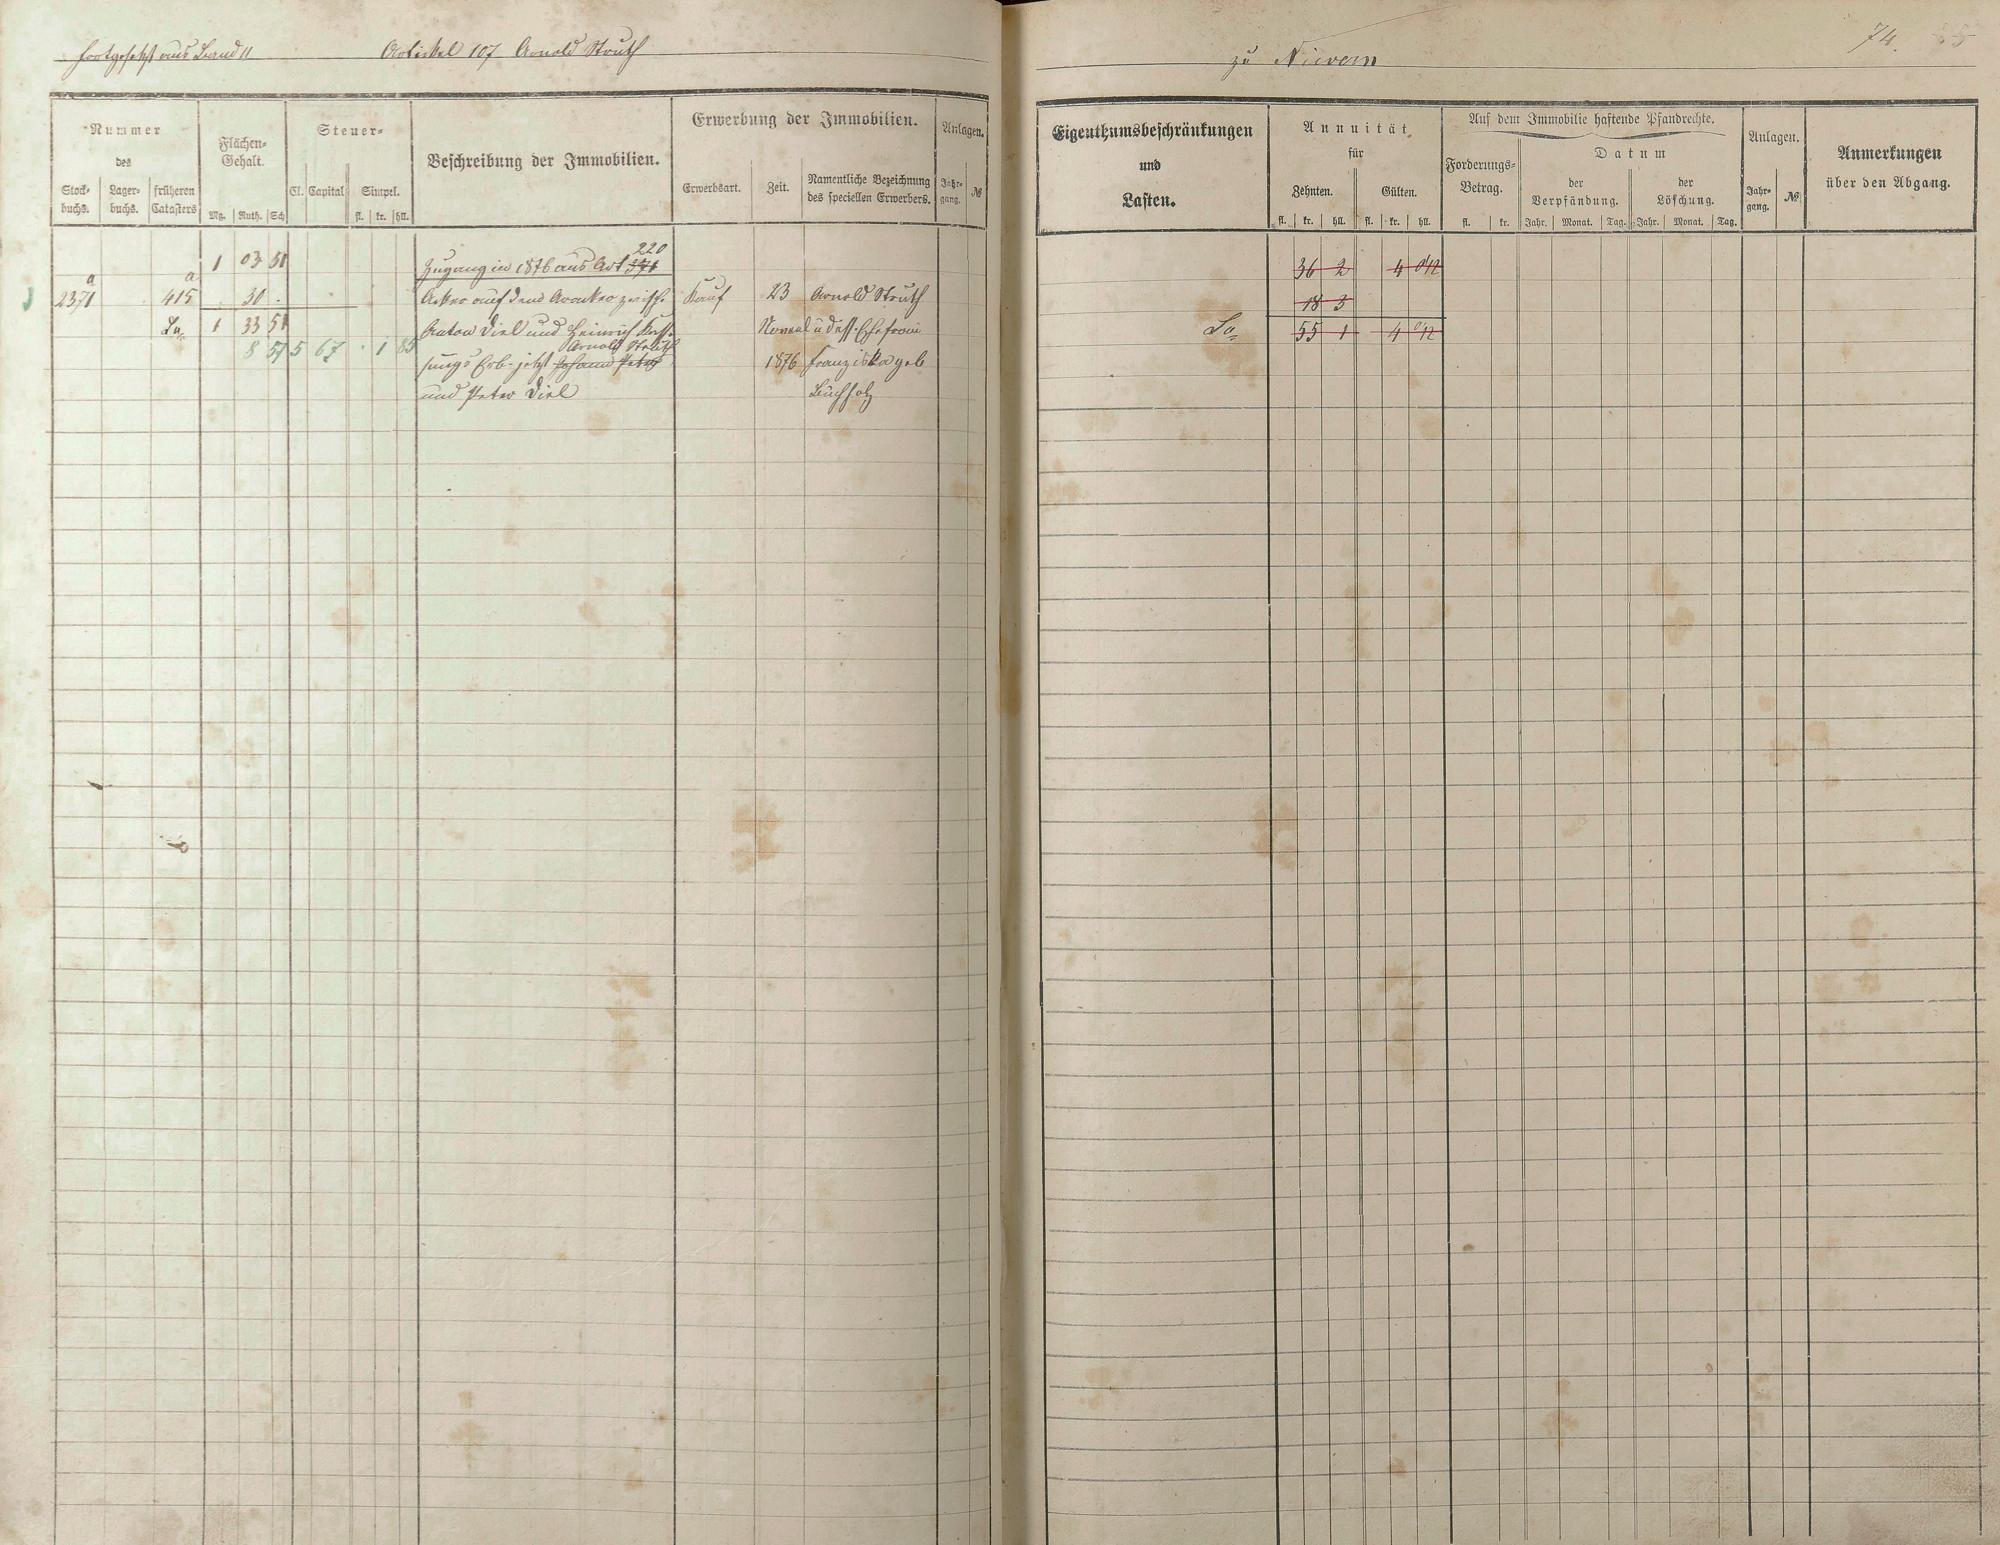 fortgesetzt aus Band II Artikel 107 Arnold Struth
zu Nievern 74.
Nummer
des
Stock-
buchs.
Lager-
buchs.
früheren
Catasters
Flächen-
Gehalt.
Mg. Ruth. Sch
Steuer-
Cl. Capital Simpel.
fl. kr. hll.
Beschreibung der Immobilien.
Erwerbung der Immobilien.
Erwerbsart. Zeit. Namentliche Bezeichnung
des speciellen Erwerbers.
Anlagen.
Jahr-
gang. №
Eigenthumsbeschränkungen
und
Lasten.
Annuität
für
Zehnten. Gülten.
fl. kr. hll. fl. kr. hll.
Auf dem Immobilie haftende Pfandrechte.
Forderungs-
Betrag.
fl. kr.
Datum
der
Verpfändung.
Jahr. Monat. Tag.
der
Löschung.
Jahr. Monat. Tag.
Anlagen.
Jahr-
gang. №
Anmerkungen
über den Abgang.
220
1 03 51 Zugang in 1876 aus Art 371
a a
2371 415 30 . Acker auf dem zwisch. Kauf 23 Arnold Struth
Sa. 1 33 51 Anton Diel und Heinrich Novembl u dess. Ehefrau
Arnold Struth
8 57 5 67 . 1 85 Erb. jetzt Johann Peter 1876 Franziska geb
und Peter Diel Buchholz
36 2 4
18 3
Sa. 55 1 4